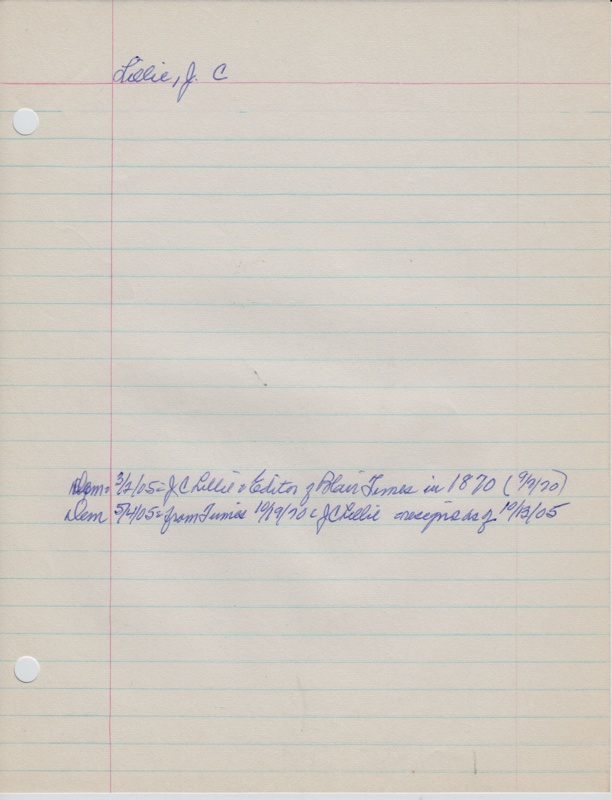 Lillie, J. C
Dem= 3/2/05= J C Lillie = Editor of Blair Times in 1870 (9/9/70)
Dem 5/4/05= from Times 10/19/70 = J C Lillie resigns as of 10/13/05